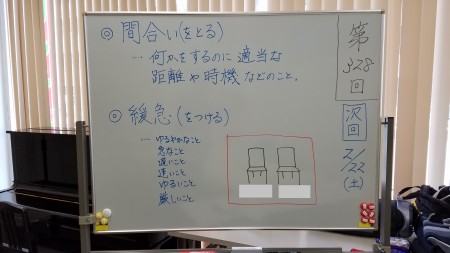 ◎ 間合い(をとる)
… 何かをするのに適当な
距離や時機などのこと。
◎ 緩急(をつける)
… ゆるやかなこと
急なこと
遅いこと
速いこと
ゆるいこと
厳しいこと
第
328
回
次
回
2/22
(土)